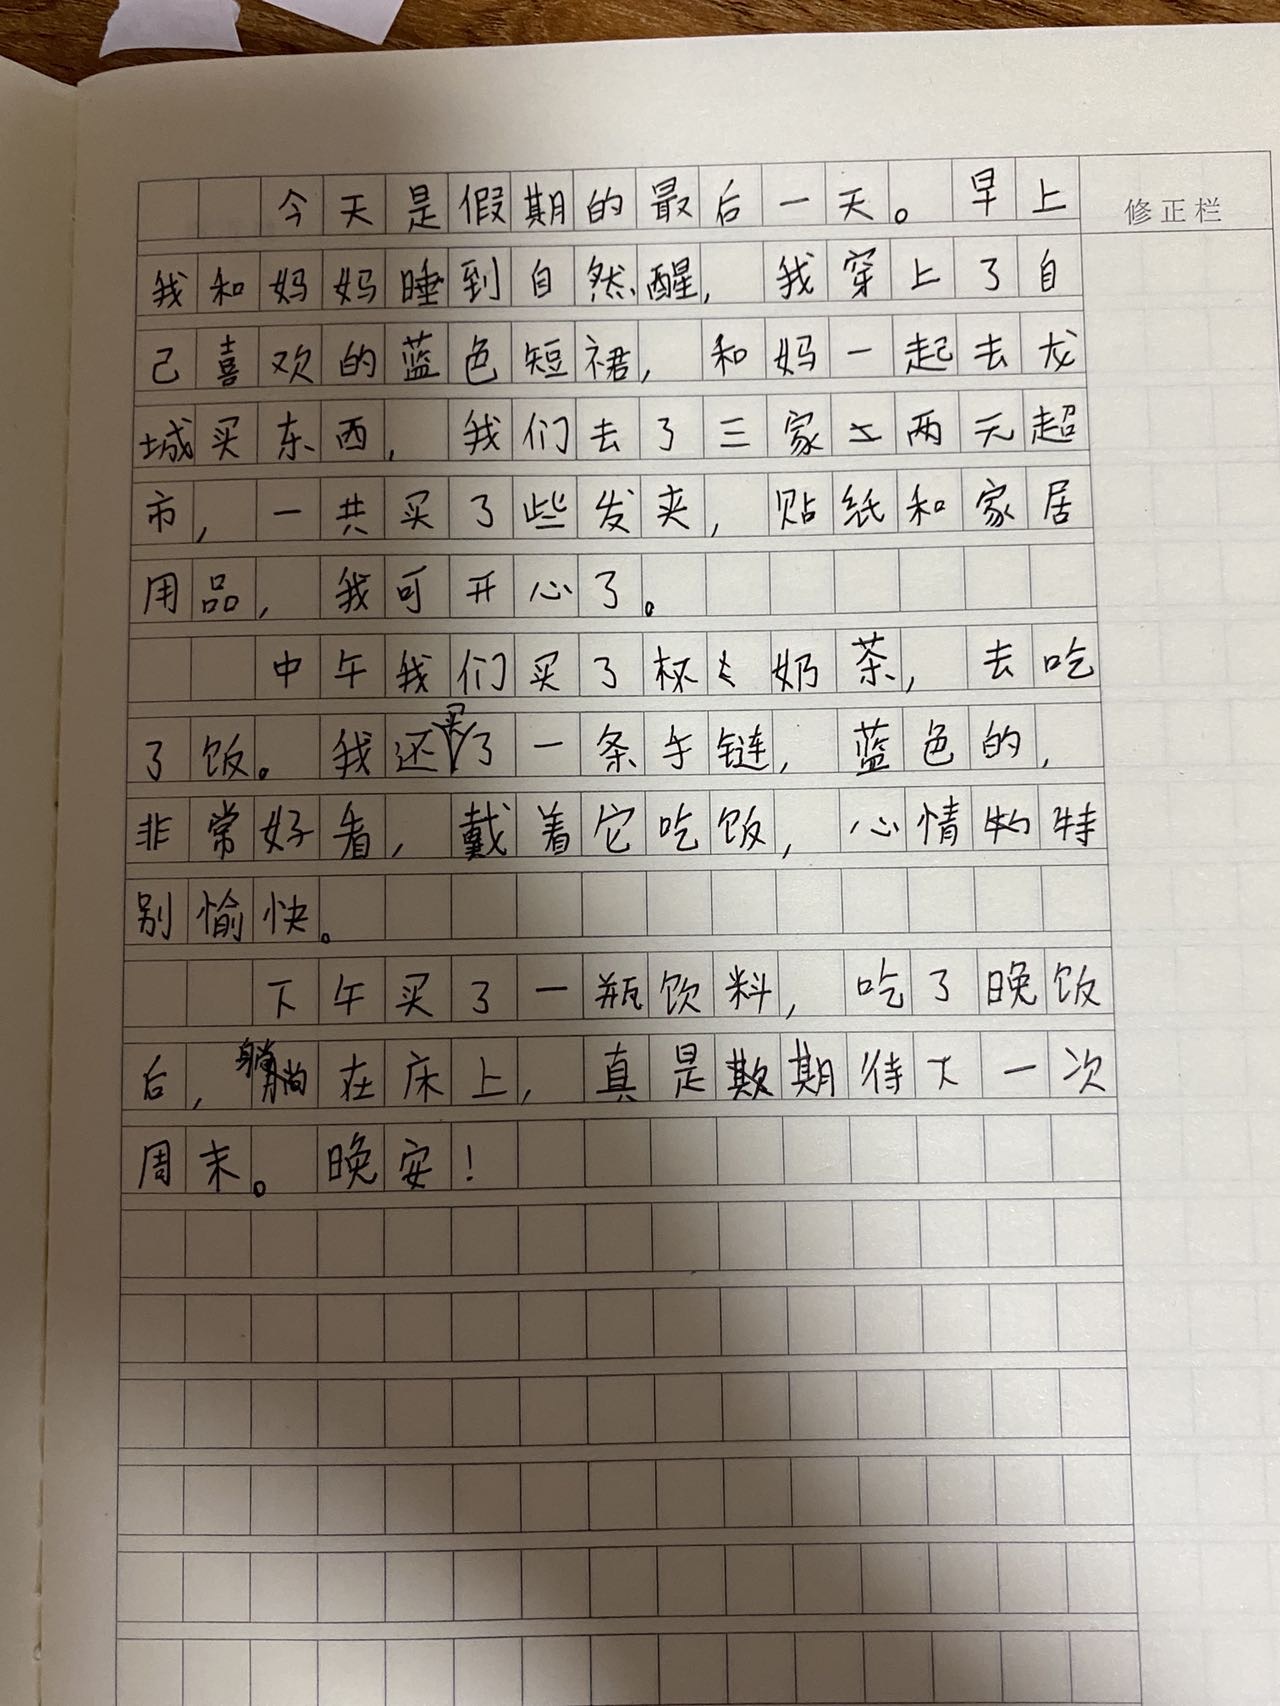 修正栏
今天是假期的最后一天。早上
我和妈妈睡到自然醒，我穿上了自
己喜欢的蓝色短裙，和妈一起去龙
城买东西，我们去了三家两元超
市，一共买了些发夹，贴纸和家居
用品，我可开心了。
中午我们买了杯奶茶，去吃
了饭。我还买了一条手链，蓝色的，
非常好看，戴着它吃饭，心情特
别愉快。
下午买了一瓶饮料，吃了晚饭
后，躺在床上，真是期待下一次
周末。晚安！